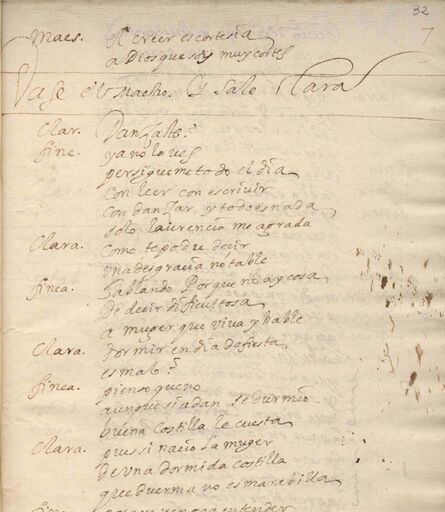 32
7
Maes. El creer es cortesia
a Dios que soy muy cortes
Vase el Maestro. y Sale Clara
Clar. Danzaste?
fine. ya no lo ves
persigueme todo el dia
con leer con escrivir
con danzar, y todo es nada
solo laurencio me agrada
Clara. Como te podre decir
una desgracia notable
finea. hablando Porque no ay cosa
de decir dificultosa
a muger que viva y hable
Clara. dormir en dia de fiesta
es malo?
finea. pienso que no
aunque si adan se durmio
buena Costilla le cuesta
Clara. pues si nacio la muger
de una dormida costilla
que duerma no es marabilla